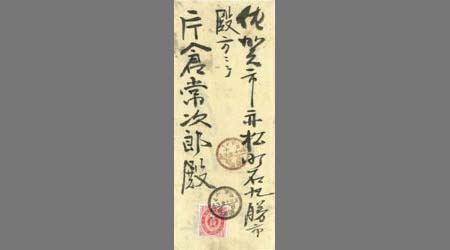 佐賀市赤松町石丸勝市
殿方ニテ
片倉常次郎殿